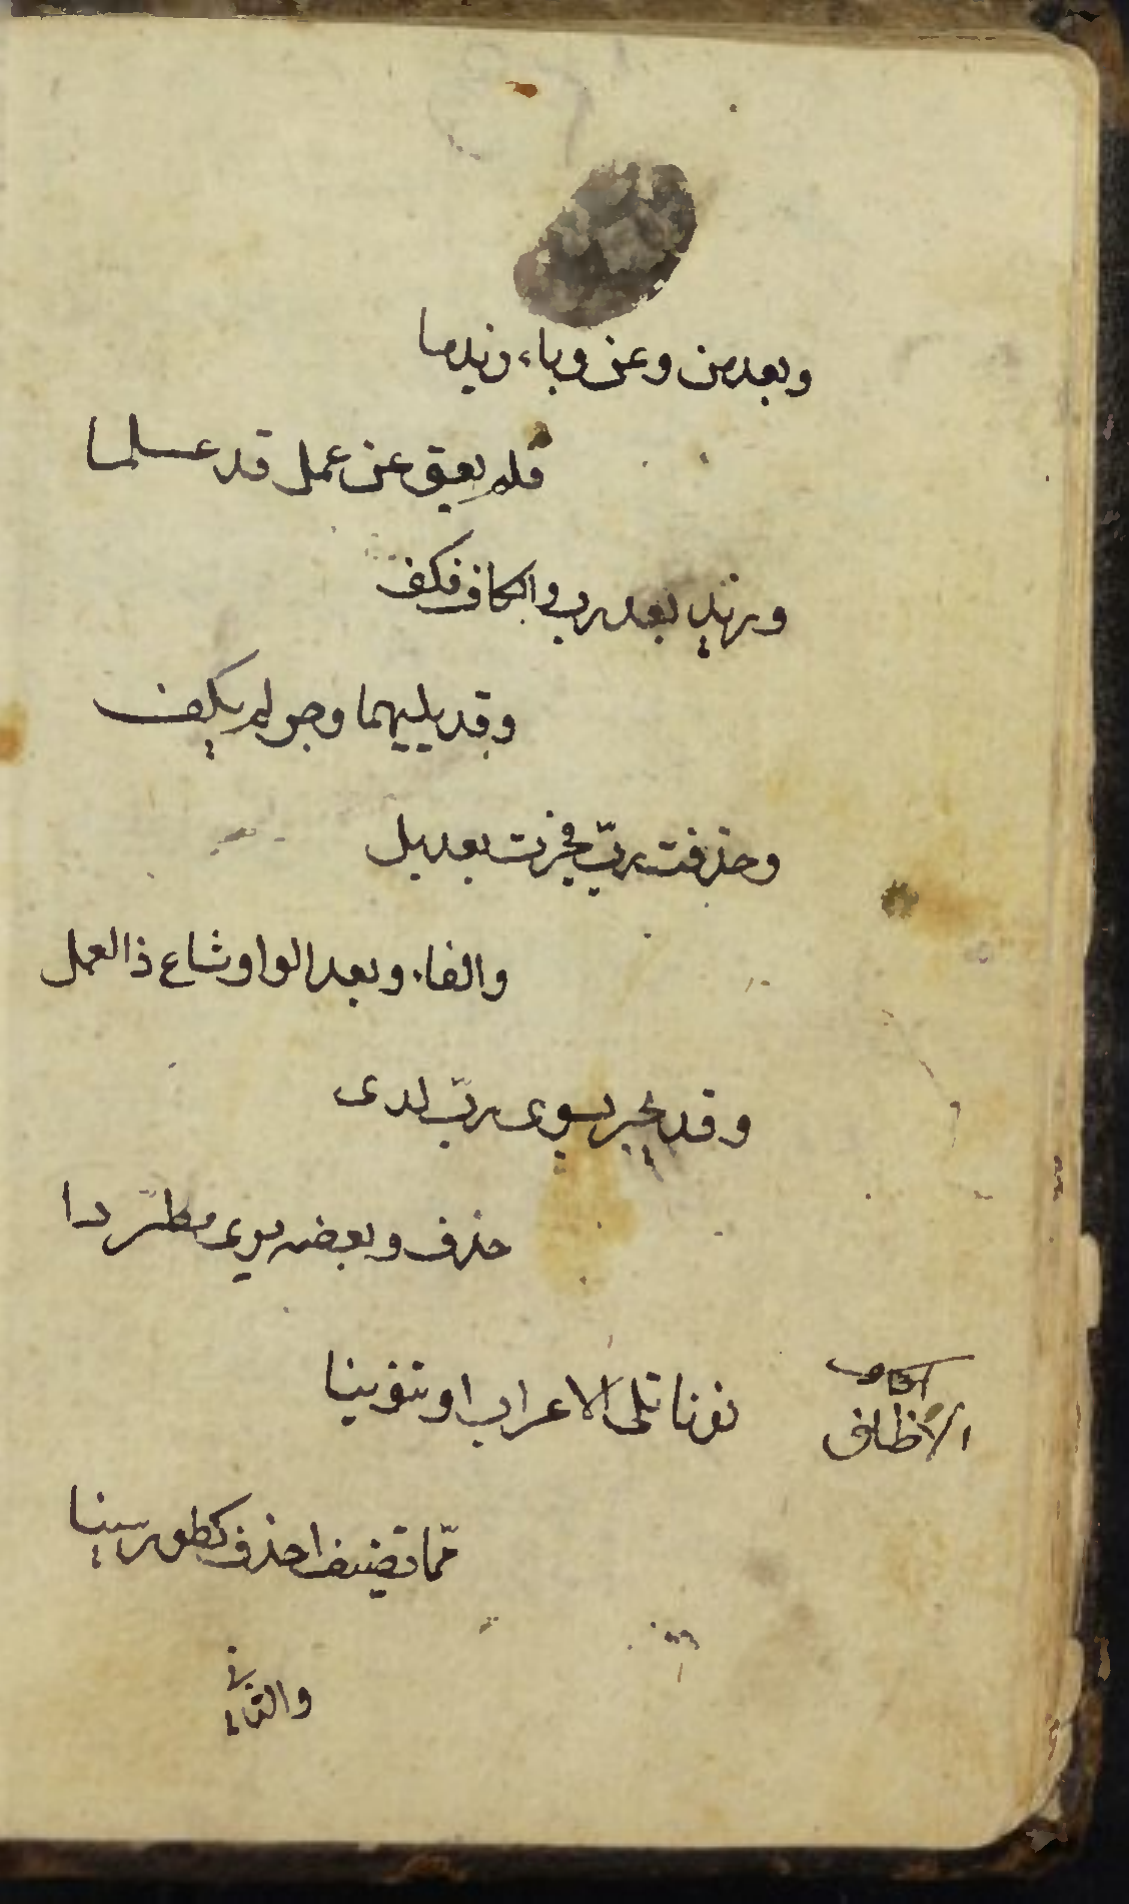 وبعد من وعن وباء زيد ما
فلم يعق عن عمل قد علما
وزيد بعد رب والكاف فكف
وقد يليهما وجر لم يكف
وحذفت ربّ فجرت بعد بل
والفاء وبعد الواو شاع ذا العمل
وقد يجر بسوى ربّ لدى
حذف وبعضه يرى مطّردا
نونا تلى الاعراب او تنوينا
ممّا تضيف احذف كطور سينا
والثانى